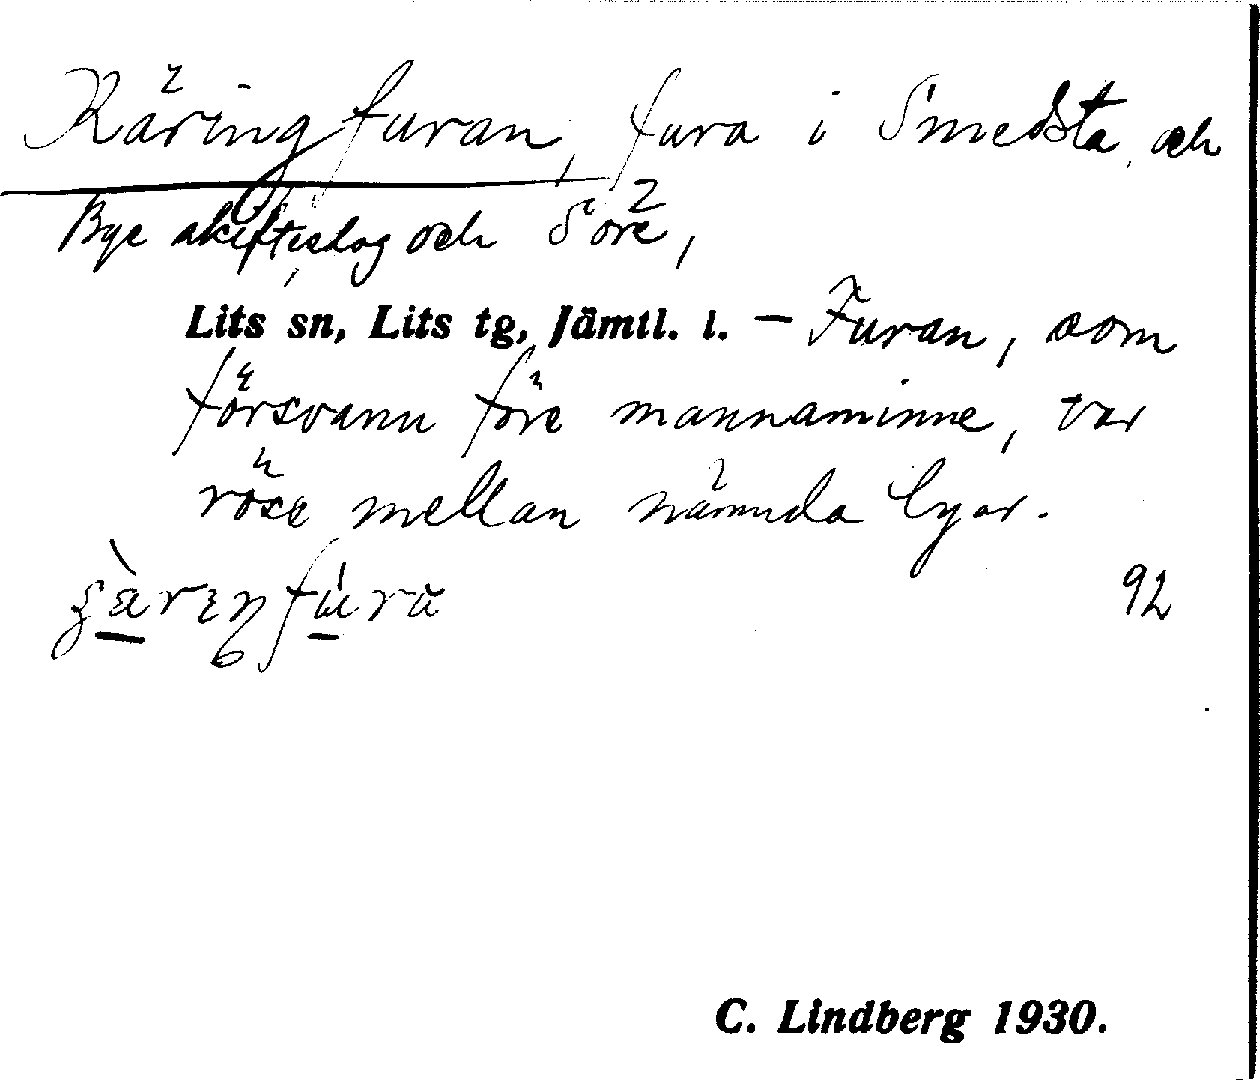 Käringfuran, fura i Smedsta och
Bye skifteslag och Söre,
Lits sn, Lits tg, Jämtl. l. – Furan, som
försvann före mannaminne, var
röse mellan nämnda byar.
92
C. Lindberg 1930.